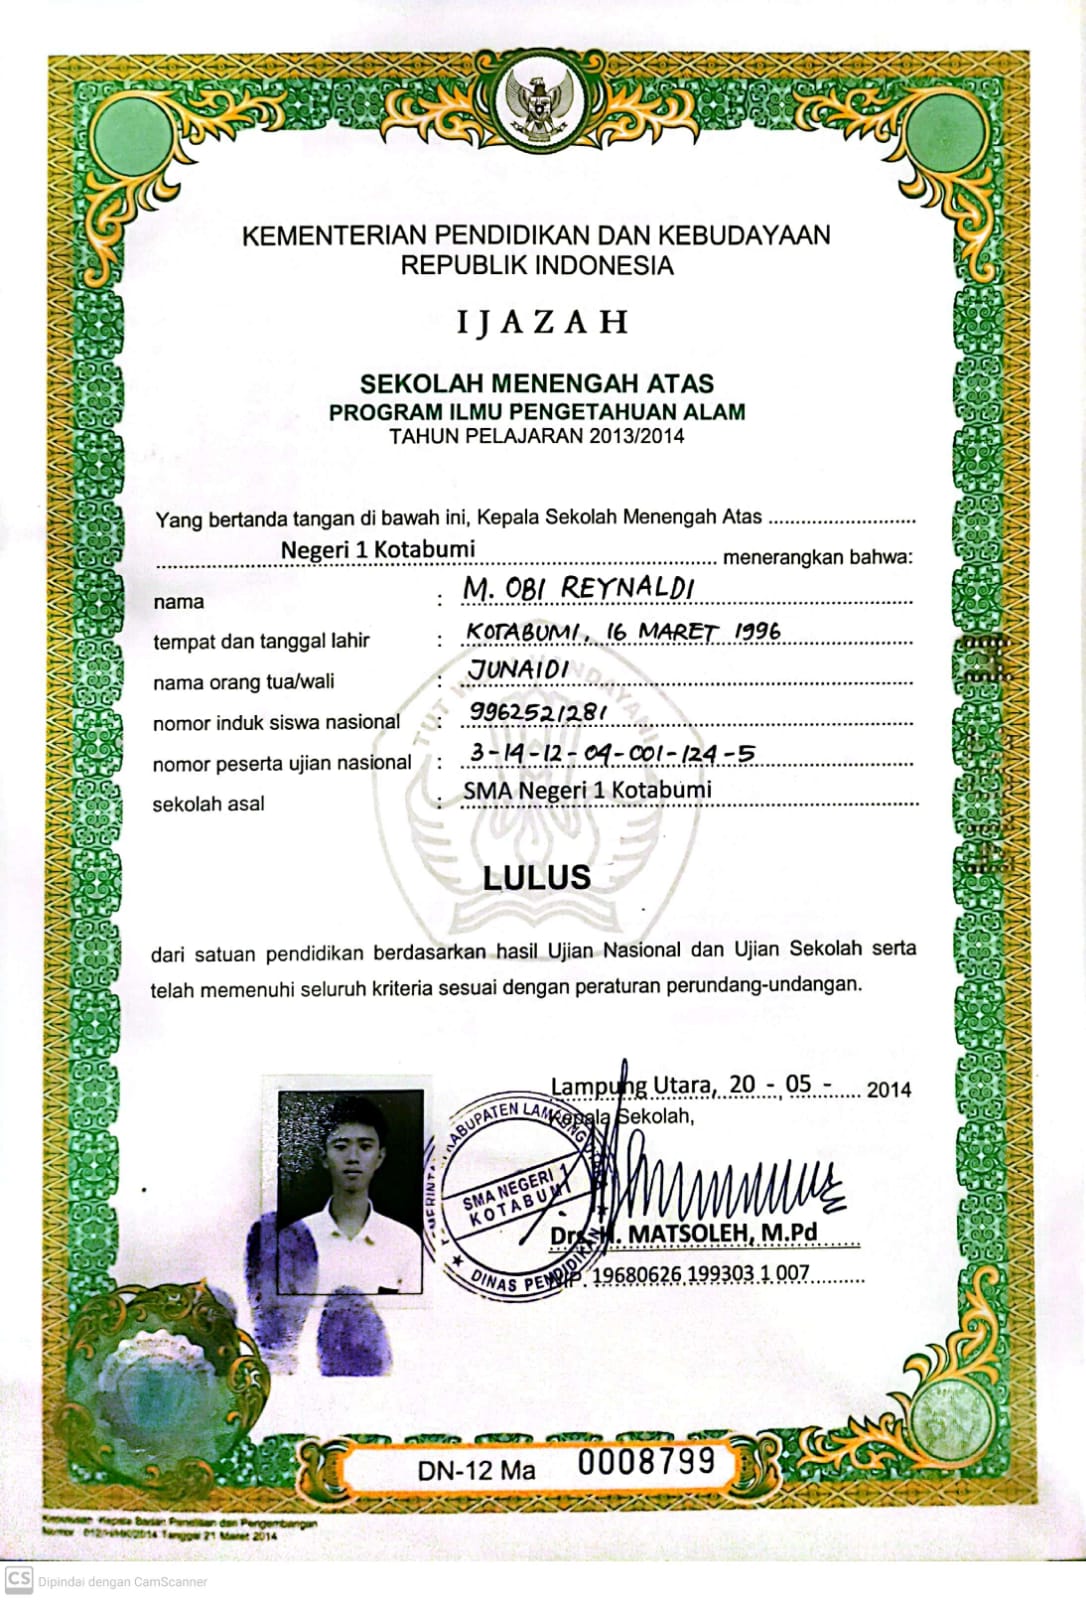 KEMENTERIAN PENDIDIKAN DAN KEBUDAYAAN
REPUBLIK INDONESIA
IJAZAH
SEKOLAH MENENGAH ATAS
PROGRAM ILMU PENGETAHUAN ALAM
TAHUN PELAJARAN 2013/2014
Yang bertanda tangan di bawah ini, Kepala Sekolah Menengah Atas
Negeri 1 Kotabumi menerangkan bahwa:
nama : M. OBI REYNALDI
tempat dan tanggal lahir : KOTABUMI, 16 MARET 1996
nama orang tua/wali : JUNAIDI
nomor induk siswa nasional : 9962521281
nomor peserta ujian nasional : 3-14-12-04-001-124-5
sekolah asal : SMA Negeri 1 Kotabumi
TUT WURI HANDAYANI
LULUS
dari satuan pendidikan berdasarkan hasil Ujian Nasional dan Ujian Sekolah serta
telah memenuhi seluruh kriteria sesuai dengan peraturan perundang-undangan.
Lampung Utara, 20 - 05 - 2014
Kepala Sekolah,
KABUPATEN LAMPUNG
SMA NEGERI 1
KOTABUMI
DINAS PENDIDIKAN
Drs. H. MATSOLEH, M.Pd
NIP. 19680626 199303 1 007
DN-12 Ma 0008799
Keputusan Kepala Badan Penelitian dan Pengembangan
Nomor Tanggal 21 Maret 2014
CS Dipindai dengan CamScanner